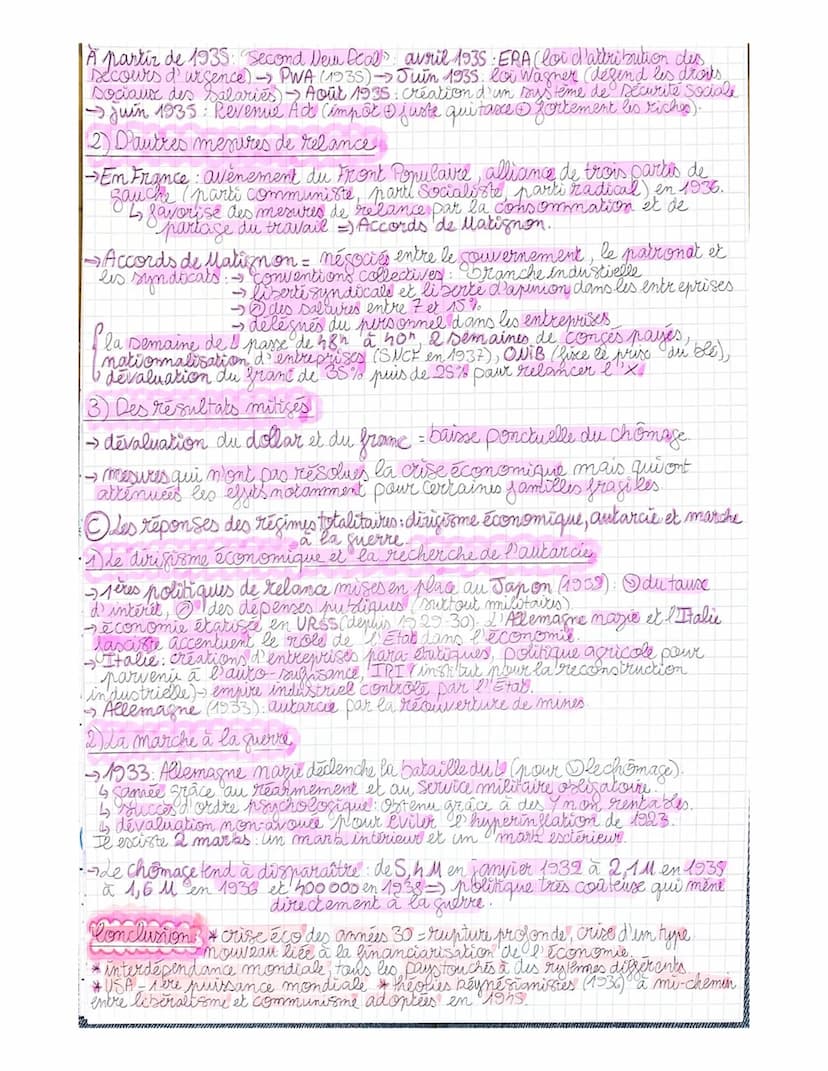 À partir de 1935: "Second New Deal": avril 1935 : ERA (loi d'attribution des
secours d'urgence) → PWA (1935) → Juin 1935: loi Wagner (défend les droits
sociaux des salariés) → Août 1935 : création d'un système de Sécurité Sociale
→ juin 1935 : Revenue Act (impôt ⊕ juste qui taxe ⊕ fortement les riches).
2) D'autres mesures de relance
→ En France : avènement du Front Populaire, alliance de trois partis de
gauche (parti communiste, parti Socialiste, parti radical) en 1936.
↳ favorise des mesures de relance par la consommation et de
partage du travail ⇒ Accords de Matignon.
→ Accords de Matignon = négociés entre le gouvernement, le patronat et
les syndicats : → conventions collectives : branche industielle
→ liberté syndicale et liberté d'opinion dans les entreprises
→ ↗ des salaires entre 7 et 15%
→ délégués du personnel dans les entreprises
la semaine de passe de 48h à 40h, 2 semaines de congés payés,
nationnalisation d'entreprises (SNCF en 1937), ONIB (fixe le prix du blé),
dévaluation du franc de 35% puis de 25% pour relancer l'X
3) Des résultats mitigés
→ dévaluation du dollar et du franc = baisse ponctuelle du chômage.
→ mesures qui n'ont pas résolues la crise économique mais qui ont
atténuées les effets notamment pour certaines familles fragiles
Ⓒ Les réponses des régimes totalitaires : dirigisme économique, autarcie et marche
à la guerre.
1) Le dirigisme économique et la recherche de l'autarcie
→ 1ères politiques de relance mises en place au Japon : ↘ du taux
d'intérêt, ↗ des dépenses publiques (surtout militaires)
→ économie étatisée en URSS (depuis 1929-30). L'Allemagne nazie et l'Italie
fasciste accentuent le rôle de l'Etat dans l'économie.
→ Italie : créations d'entreprises para-étatiques, politique agricole pour
parvenir à l'auto-suffisance, IRI (institut pour la reconstruction
industrielle) → empire industriel contrôlé par l'Etat.
→ Allemagne (1933): autarcie par la réouverture de mines
2) La marche à la guerre
→ 1933: Allemagne nazie déclenche la bataille du (pour ↘ le chômage).
↳ gagnée grâce au réarmement et au service militaire obligatoire.
↳ succès d'ordre psychologique : obtenu grâce à des non rentables.
↳ dévaluation non-avouée pour éviler l'hyperinflation de 1923.
Il existe 2 marks : un mark intérieur et un mark extérieur.
→ Le chômage tend à disparaître : de 5,4M en janvier 1932 à 2,1M en 1935
à 1,6 M en 1936 et 400 000 en 1938 ⇒ politique très coûteuse qui mène
directement à la guerre.
Conclusion : * crise éco des années 30 = rupture profonde, crise d'un type
nouveau liée à la financiarisation de l'économie.
* interdépendance mondiale, tous les pays touchés à des rythmes différents
* USA = 1ère puissance mondiale * théories keynésianistes (1936) à mi-chemin
entre libéralisme et communisme adoptées en 1945.